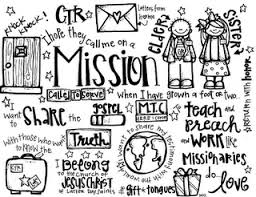 Knock Knock!
CTR
Letters from home
ELDER
SISTER
I hope they call me on a
Mission
Called to Serve
when I have grown a foot or two.
want to SHARE the gospel
M.T.C.
teach and
preach
and WORK like
Missionaries
do
RETURN with HONOR
With those who want
to know the
Truth
I Belong
to the Church of
JESUS CHRIST
of Latter Day Saints
CTR
the gift of tongues
LOVE